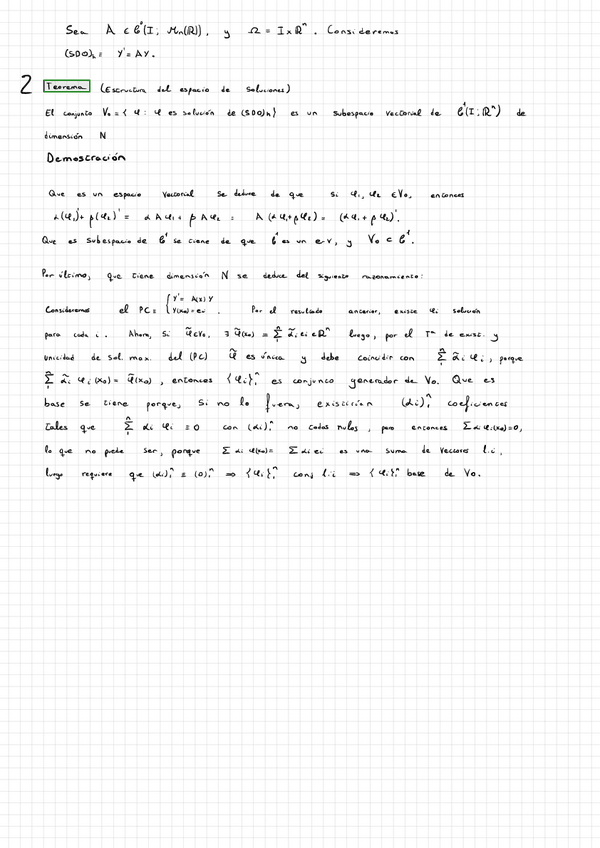 Sea A ∈ C⁰(I; Mn(ℝ)), y Ω = I × ℝⁿ. Consideremos
(SDO)h ≡ Y' = AY.
2 Teorema (Estructura del espacio de soluciones)
El conjunto V₀ = { φ : φ es solución de (SDO)h } es un subespacio vectorial de C¹(I; ℝⁿ) de
dimensión N
Demostración
Que es un espacio vectorial se deduce de que si φ₁, φ₂ ∈ V₀, entonces
α(φ₁)' + β(φ₂)' = α A φ₁ + β A φ₂ = A (α φ₁ + β φ₂) = (α φ₁ + β φ₂)'.
Que es subespacio de C¹ se tiene de que C¹ es un e.v, y V₀ ⊂ C¹.
Por último, que tiene dimensión N se deduce del siguiente razonamiento:
Consideremos el PCi ≡ { Y' = A(x) Y
Y(x₀) = ei . Por el resultado anterior, existe φi solución
para cada i. Ahora, si φ̃ ∈ V₀, ∃ φ̃(x₀) = Σ₁ⁿ α̃i ei ∈ ℝⁿ luego, por el Tᵃ de exist. y
unicidad de sol. max. del (PC) φ̃ es única y debe coincidir con Σ₁ⁿ α̃i φi, porque
Σ₁ⁿ α̃i φi(x₀) = φ̃(x₀), entonces {φi}₁ⁿ es conjunto generador de V₀. Que es
base se tiene porque, si no lo fuera, existirían (αi)₁ⁿ coeficientes
tales que Σ₁ⁿ αi φi ≡ 0 con (αi)₁ⁿ no todos nulos, pero entonces Σ αi φi(x₀) = 0,
lo que no puede ser, porque Σ αi φ(x₀) = Σ αi ei es una suma de vectores l.i.
luego requiere que (αi)₁ⁿ = (0)₁ⁿ ⇒ {φi}₁ⁿ conj l.i ⇒ {φi}₁ⁿ base de V₀.